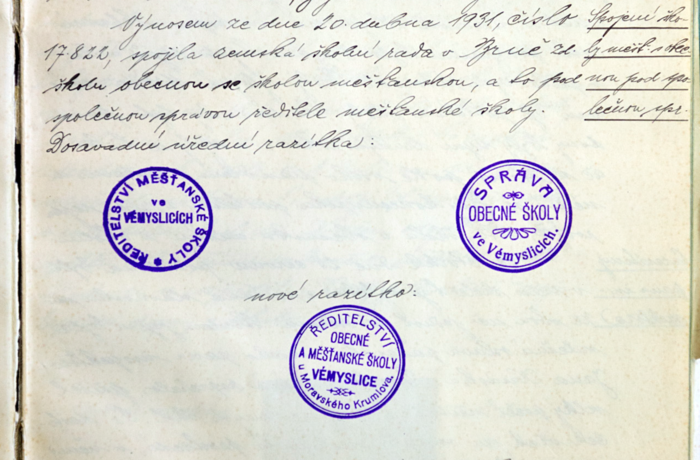 Výnosem ze dne 20. dubna 1931, číslo
17822, spojila zemská školní rada v Brně zd.
školu obecnou se školou měšťanskou, a to pod
společnou správou ředitele měšťanské školy.
Dosavadní úřední razítka:
Spojení ško
ly měšť. s obec
nou pod spo
lečnou spr.
ŘEDITELSTVÍ MĚŠŤANSKÉ ŠKOLY
ve
VÉMYSLICÍCH
SPRÁVA
OBECNÉ ŠKOLY
ve Vémyslicích.
nové razítko:
ŘEDITELSTVÍ
OBECNÉ
A MĚŠŤANSKÉ ŠKOLY
VÉMYSLICE
u Moravského Krumlova.